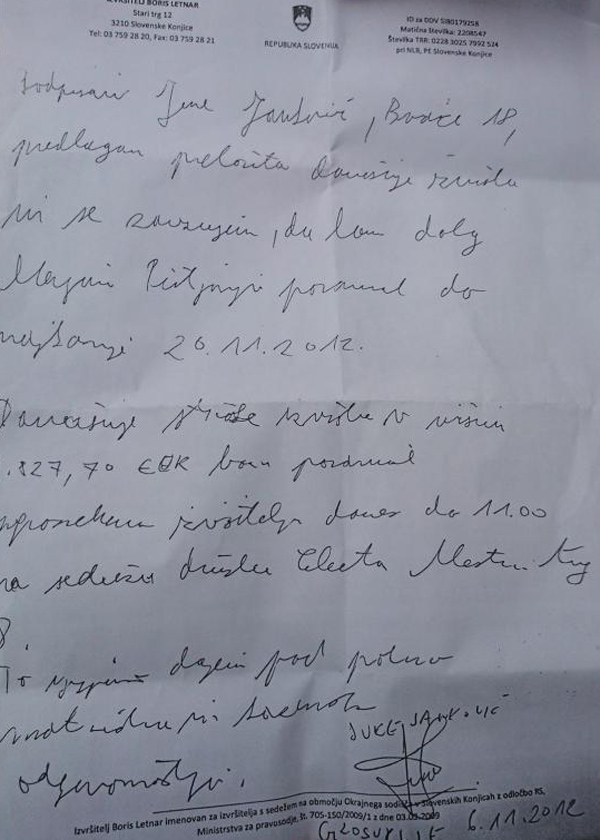 IZVRŠITELJ BORIS LETNAR
Stari trg 12
3210 Slovenske Konjice
Tel: 03 759 28 20, Fax: 03 759 28 21
REPUBLIKA SLOVENIJA
ID za DDV SI80179258
Matična številka: 2208547
Številka TRR: 0228 3025 7992 524
pri NLB, PE Slovenske Konjice
Podpisani Jure Janković, 18,
predlagam preložitev današnje izvršbe
in se zavezujem, da bom dolg
poravnal do
najkasneje 20.11.2012.
Današnje stroške izvršbe v višini
827,70 EUR bom poravnal
izvršitelja danes do 11.00
na sedežu družbe Electa Mestni trg
8.
To izjavo dajem pod polno
materialno in kazensko
odgovornostjo.
JURE JANKOVIĆ
Izvršitelj Boris Letnar imenovan za izvršitelja s sedežem na območju Okrajnega sodišča v Slovenskih Konjicah z odločbo RS,
Ministrstva za pravosodje, št. 705-150/2009/1 z dne 03.03.2009
6.11.2012